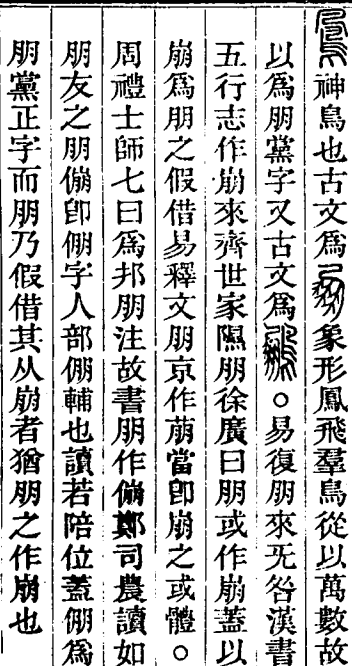 神鳥也古文爲象形鳳飛羣鳥從以萬數故
以爲朋黨字又古文爲○易復朋來无咎漢書
五行志作崩來齊世家隰朋徐廣曰朋或作崩蓋以
崩爲朋之假借易釋文朋京作萠當卽崩之或體○
周禮士師七曰爲邦朋注故書朋作傰鄭司農讀如
朋友之朋傰卽倗字人部倗輔也讀若陪位蓋倗爲
朋黨正字而朋乃假借其从崩者猶朋之作崩也